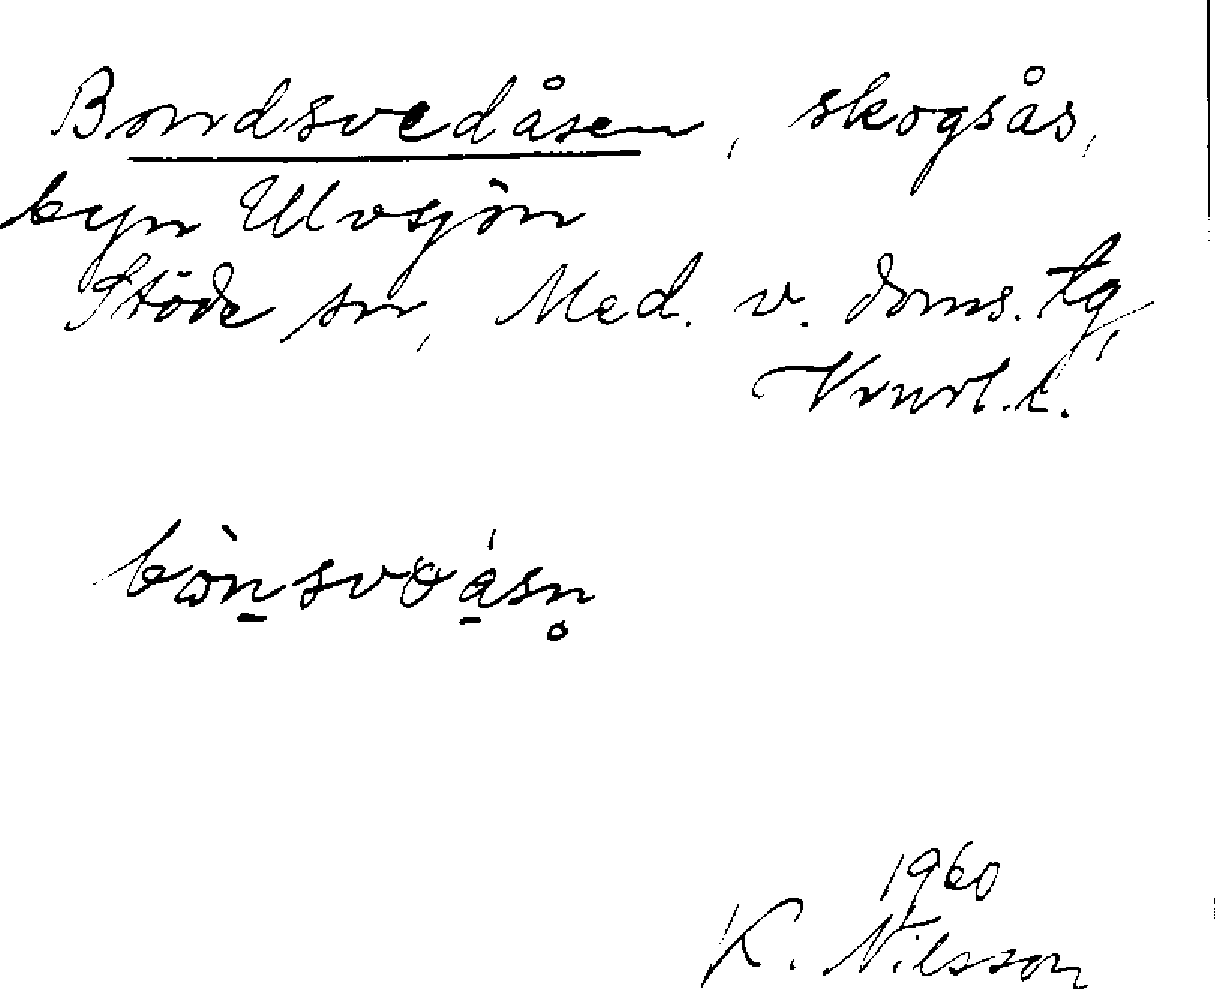 Bondsvedåsen, skogsås,
byn Ulvsjön
Stöde sn, Med. v. doms. tg,
Vnorl. l.
1960
K. Nilsson